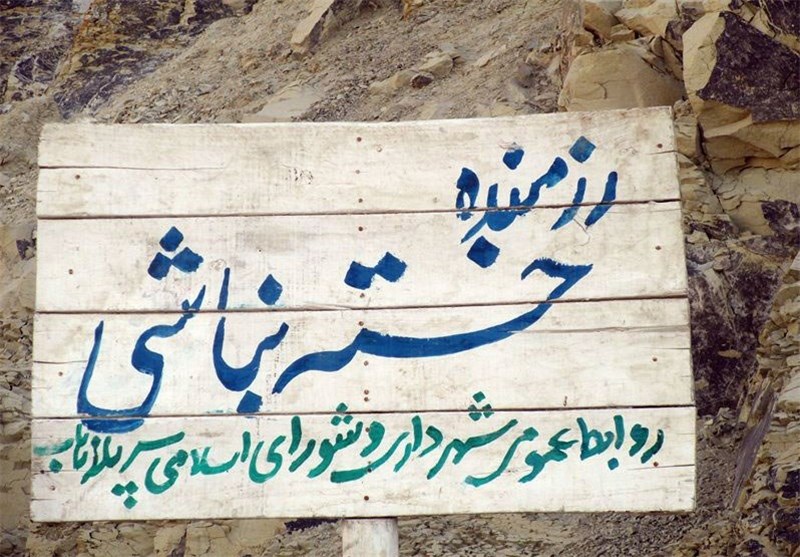 رزمنده
خسته نباشی
روابط عمومی شهرداری و شورای اسلامی سرپلذهاب